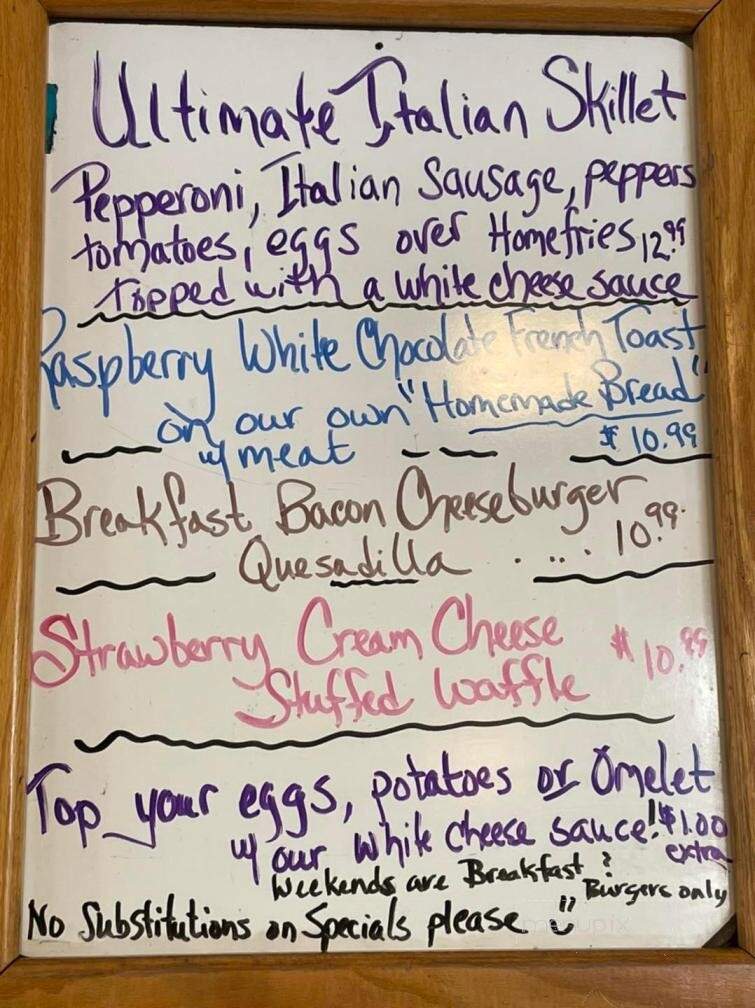 Ultimate Italian Skillet
Pepperoni, Italian Sausage, peppers
tomatoes, eggs over Homefries 12.99
topped with a white cheese sauce
Raspberry White Chocolate French Toast
on our own "Homemade Bread"
w/ meat $10.99
Breakfast Bacon Cheeseburger
Quesadilla .... 10.99
Strawberry Cream Cheese
Stuffed Waffle $10.99
Top your eggs, potatoes or Omelet
w/ our white cheese sauce! $1.00
extra
Weekends are Breakfast &
Burgers only
No Substitutions on Specials please
menupix